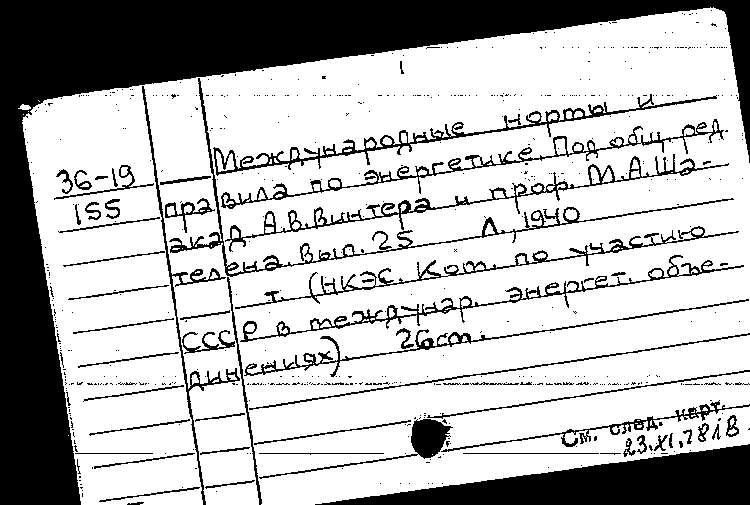 Международные нормы и
36-19 правила по энергетике. Под общ. ред.
155 акад. А.В.Винтера и проф. М.А.Ша-
телена. Вып. 25 Л., 1940
т. (НКЭС. Ком. по участию
СССР в междунар. энергет. объе-
динениях). 26cm.
См. след. карт.